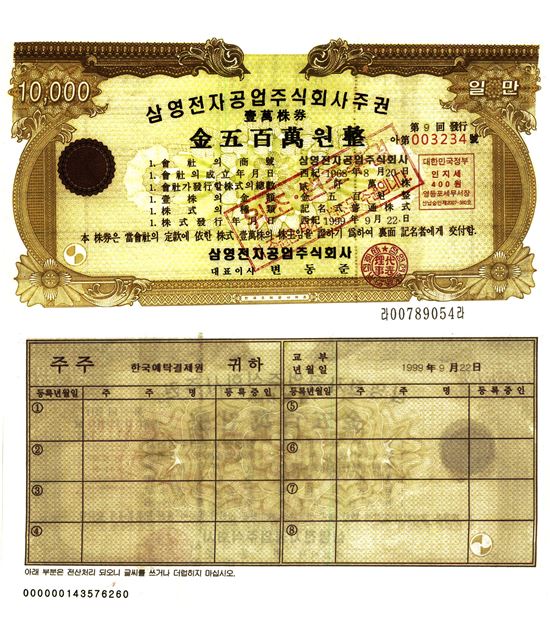 10,000
일만
삼영전자공업주식회사주권
壹萬株券
金五百萬원整
第 9 回 發行
아第003234號
1. 會社의 商號 삼영전자공업주식회사
1. 會社의 成立年月日 西紀 1968 年 8 月 20 日
1. 會社가發行할株式의總數 貳千萬株
1. 壹株의 金額 金五百원整
1. 株式의 種類 記名式普通株式
1. 株式發行年月日 西紀 1999 年 9 月 22 日
대한민국정부
인지세
400원
영등포세무서장
本 株券은 當會社의 定款에 依한 株式 壹萬株의 株主임을 證하기 爲하여 裏面 記名者에게 交付함.
삼영전자공업주식회사
대표이사 변동준
라00789054라
주주 한국예탁결제원 귀하
교부년월일 1999 年 9 月 22 日
등록년월일 주주명 등록증인 등록년월일 주주명 등록증인
① ⑤
② ⑥
③ ⑦
④ ⑧
아래 부분은 전산처리 되오니 글씨를 쓰거나 더럽히지 마십시오.
000000143576260